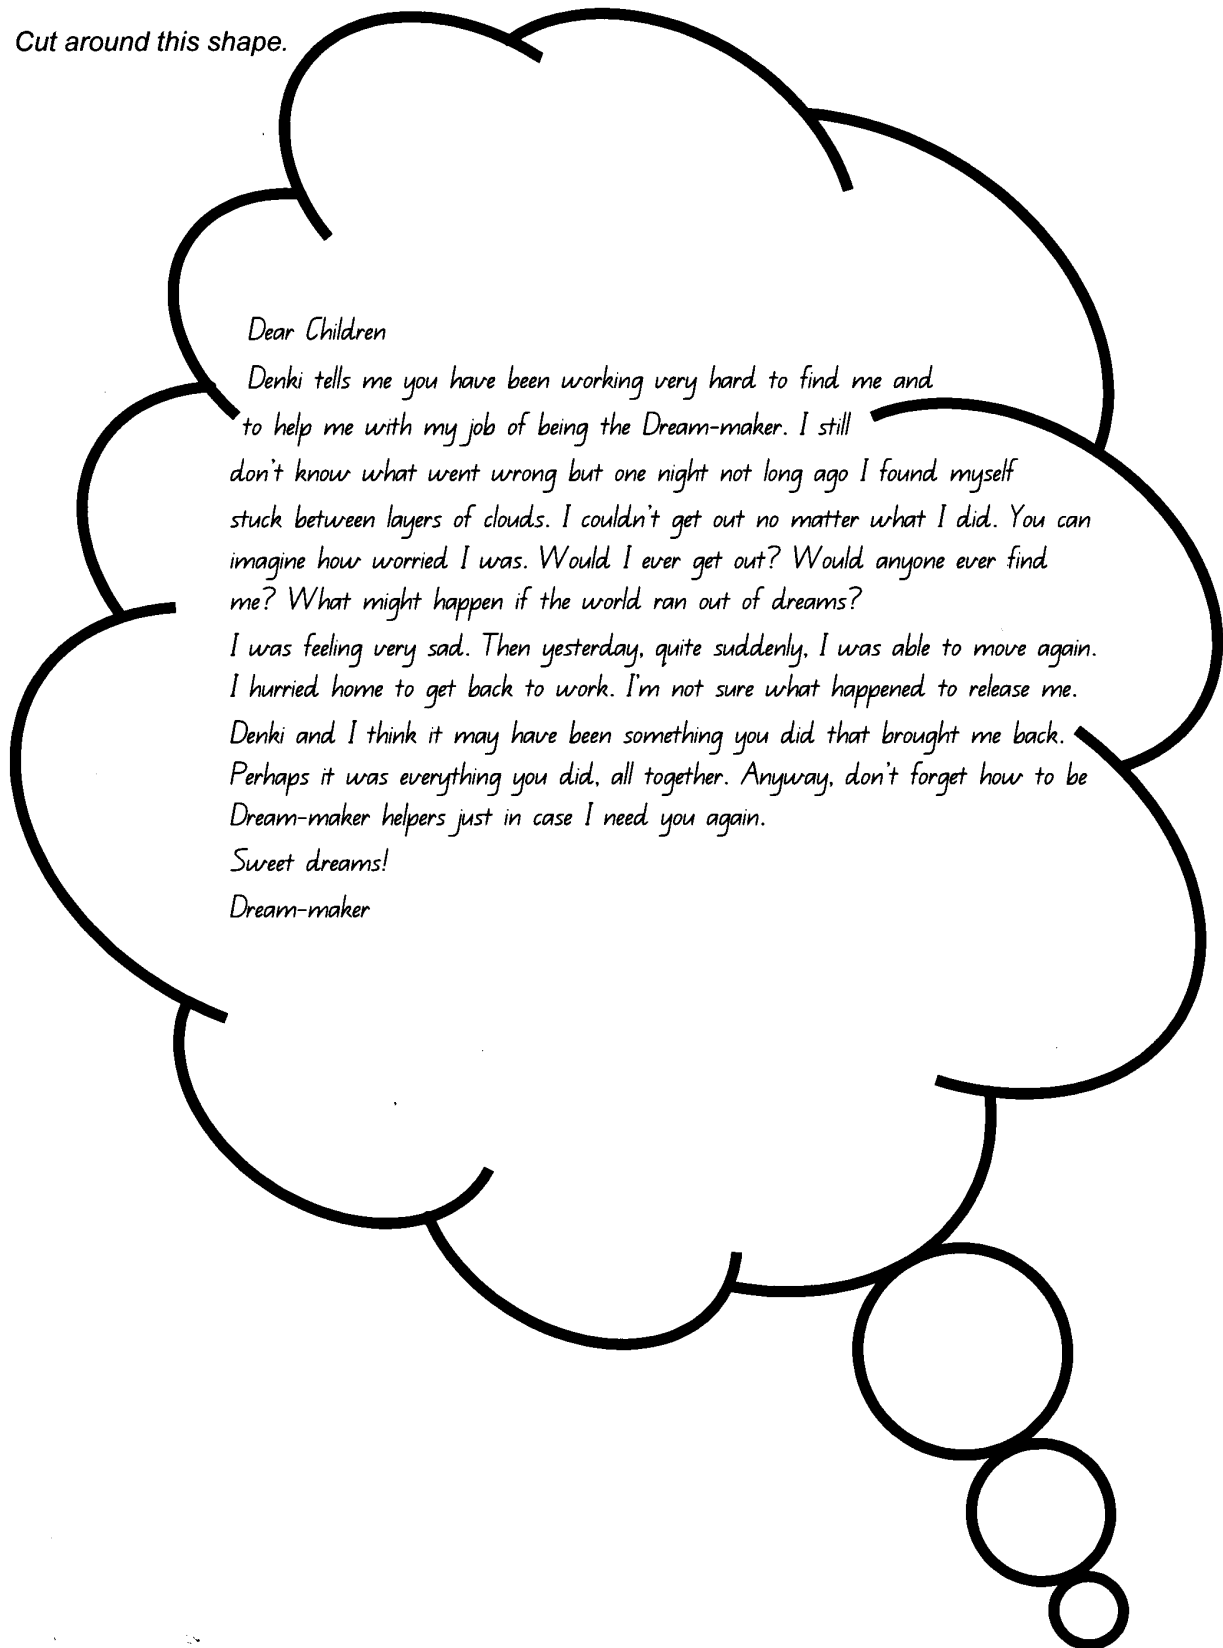 Cut around this shape.
Dear Children
Denki tells me you have been working very hard to find me and
to help me with my job of being the Dream-maker. I still
don't know what went wrong but one night not long ago I found myself
stuck between layers of clouds. I couldn't get out no matter what I did. You can
imagine how worried I was. Would I ever get out? Would anyone ever find
me? What might happen if the world ran out of dreams?
I was feeling very sad. Then yesterday, quite suddenly, I was able to move again.
I hurried home to get back to work. I'm not sure what happened to release me.
Denki and I think it may have been something you did that brought me back.
Perhaps it was everything you did, all together. Anyway, don't forget how to be
Dream-maker helpers just in case I need you again.
Sweet dreams!
Dream-maker